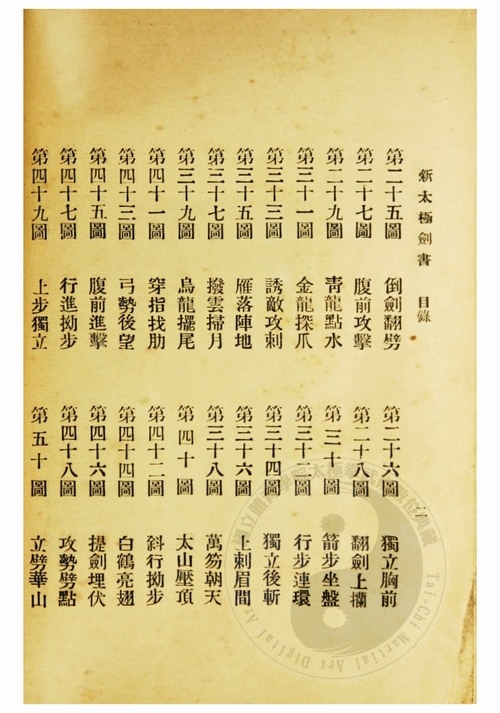 新太極劍書 目錄
第二十五圖 倒劍翻劈 第二十六圖 獨立胸前
第二十七圖 腹前攻擊 第二十八圖 翻劍上攔
第二十九圖 靑龍點水 第三十圖 箭步坐盤
第三十一圖 金龍探爪 第三十二圖 行步連環
第三十三圖 誘敵攻刺 第三十四圖 獨立後斬
第三十五圖 雁落陣地 第三十六圖 上刺眉間
第三十七圖 撥雲掃月 第三十八圖 萬笏朝天
第三十九圖 烏龍擺尾 第四十圖 太山壓頂
第四十一圖 穿指找肋 第四十二圖 斜行拗步
第四十三圖 弓勢後望 第四十四圖 白鶴亮翅
第四十五圖 腹前進擊 第四十六圖 提劍埋伏
第四十七圖 行進拗步 第四十八圖 攻勢劈點
第四十九圖 上步獨立 第五十圖 立劈華山
Tai-Chi Martial Art Digital Ar